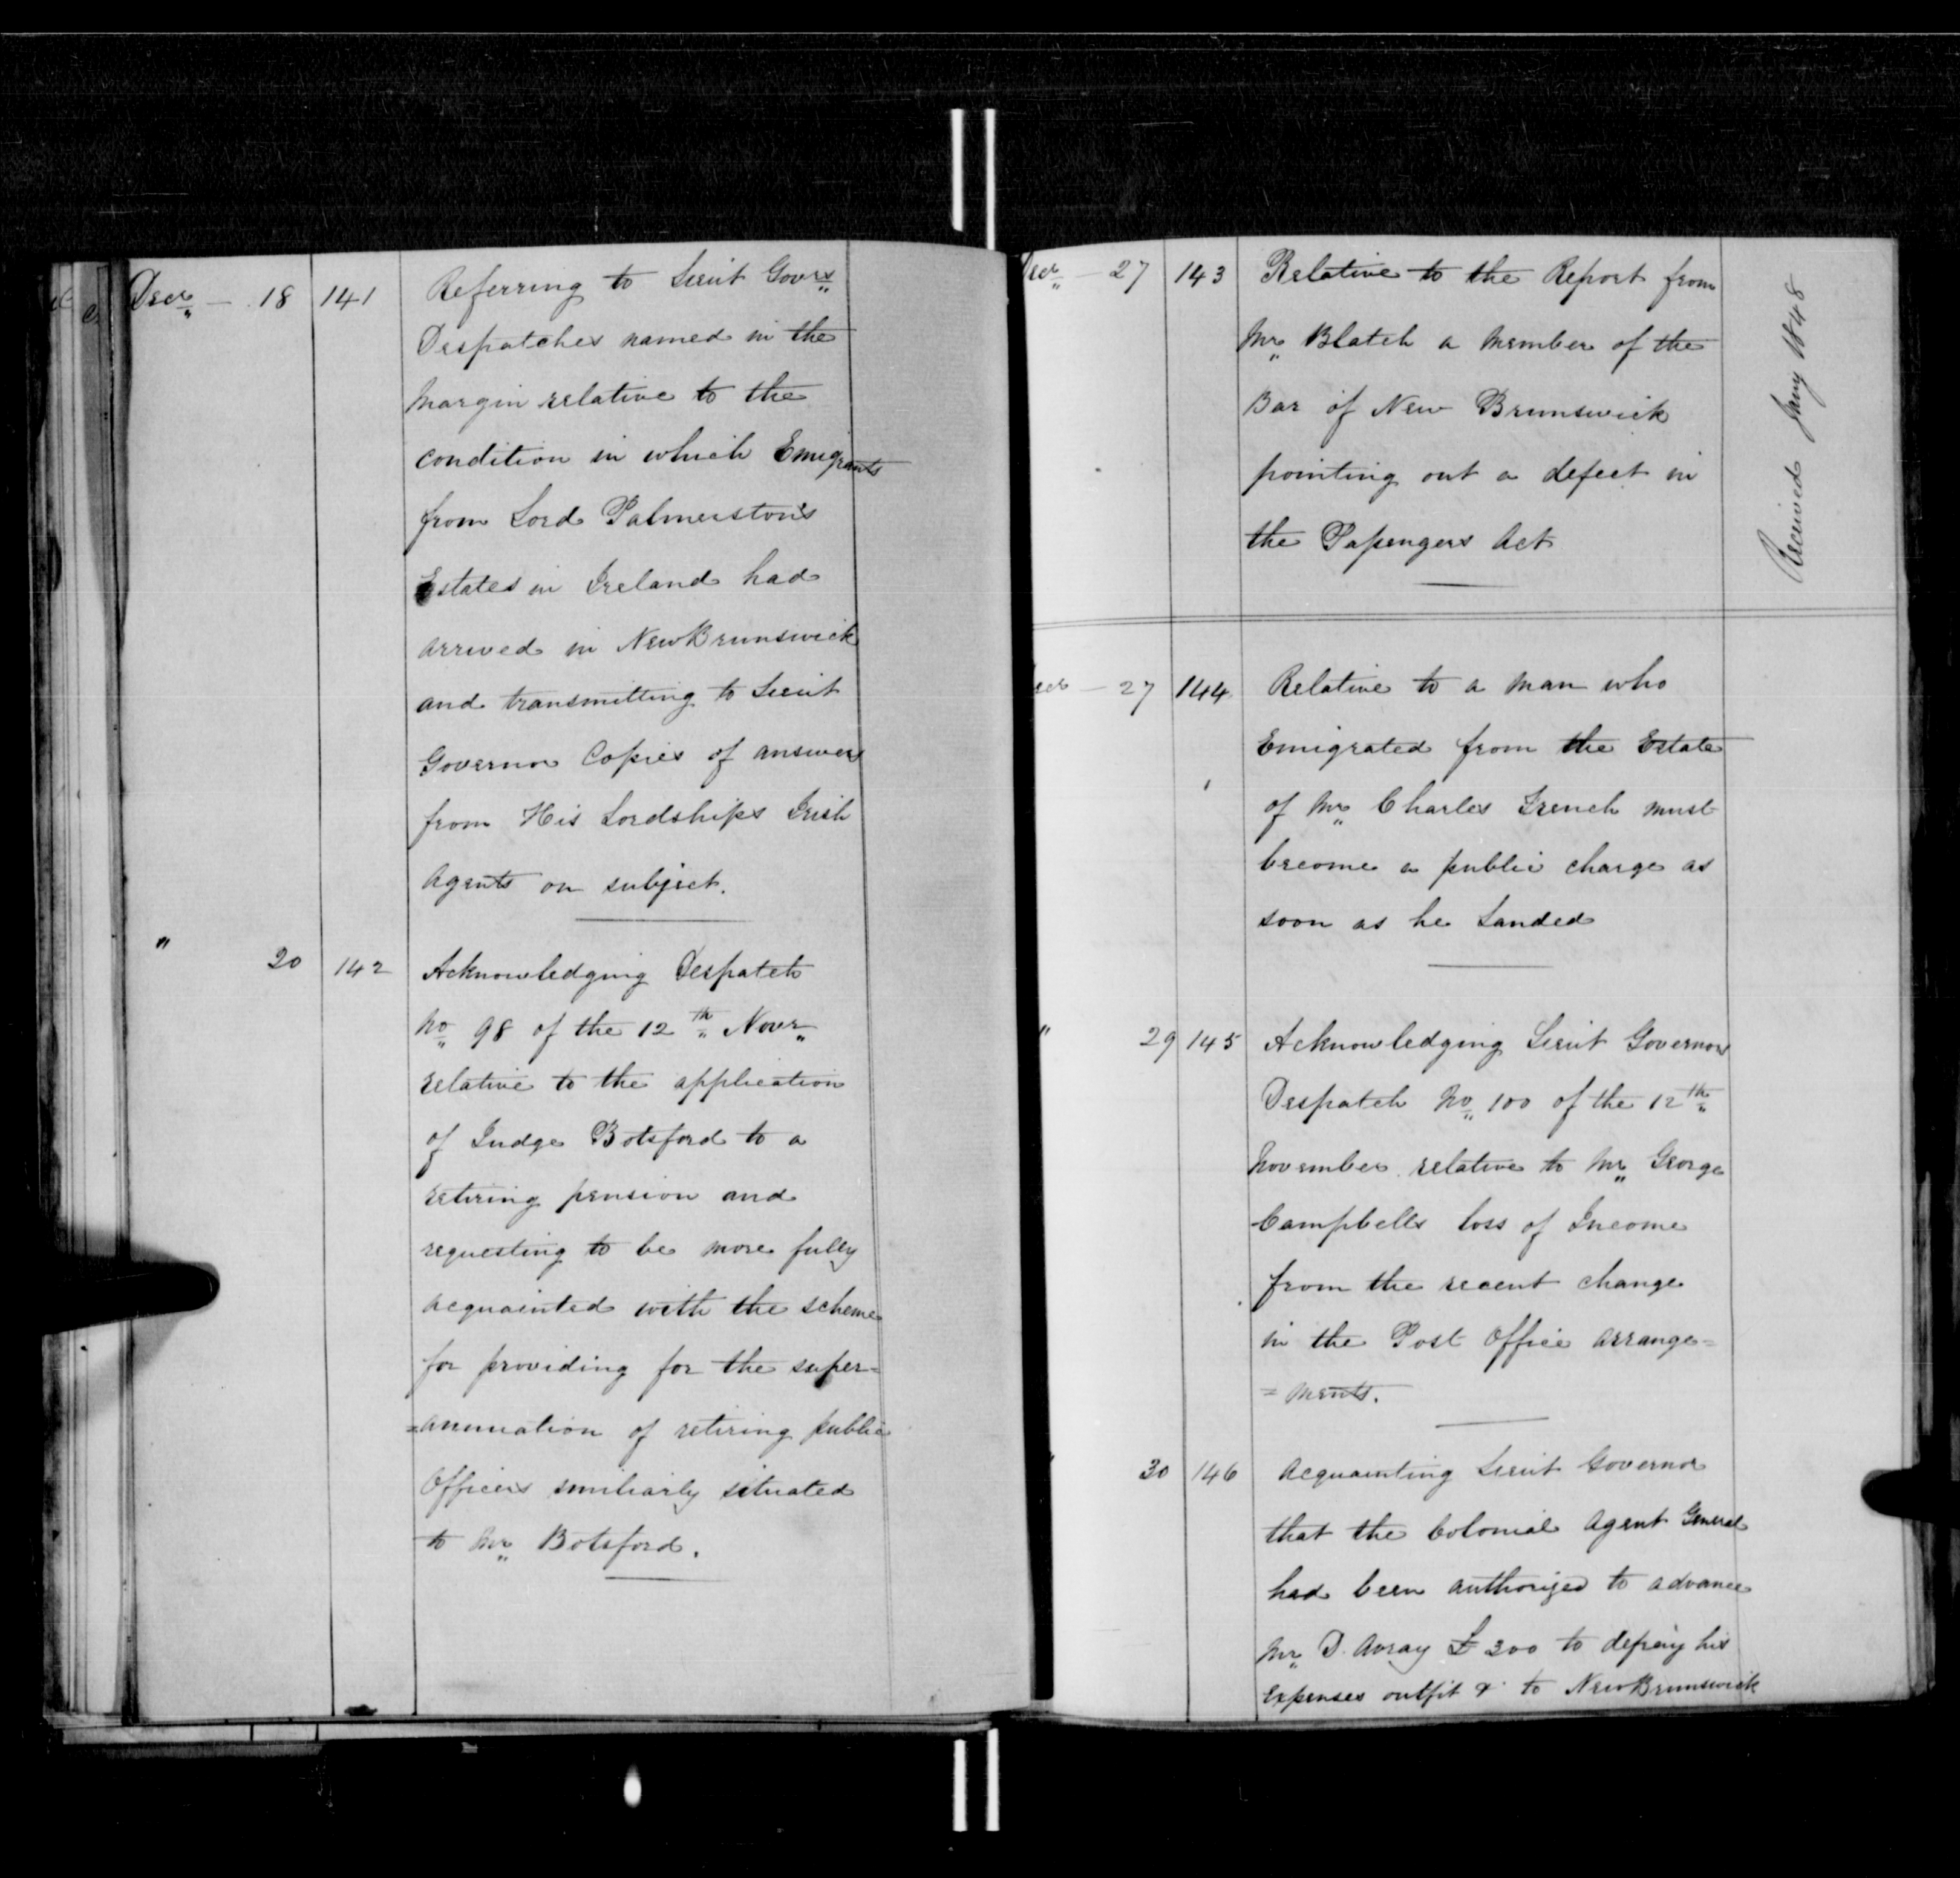 Decr — 18 141 Referring to Lieut Govrs
Despatches named in the
margin relative to the
condition in which Emigrants
from Lord Palmerston's
Estates in Ireland had
arrived in New Brunswick
and transmitting to Lieut
Governor Copies of answers
from His Lordships Irish
Agents on subject.
" 20 142 Acknowledging Despatch
No 98 of the 12th Novr
relative to the application
of Judge Botsford to a
retiring pension and
requesting to be more fully
acquainted with the scheme
for providing for the super=
=annuation of retiring public
Officers similiarly situated
to Mr Botsford.
Decr — 27 143 Relative to the Report from
Mr Blatch a member of the
Bar of New Brunswick
pointing out a defect in
the Passengers Act
Received Jany 1848
Decr — 27 144 Relative to a man who
Emigrated from the Estate
of Mr Charles French must
become a public charge as
soon as he Landed
" 29 145 Acknowledging Lieut Governors
Despatch No 100 of the 12th
November relative to Mr George
Campbells loss of Income
from the recent change
in the Post Office arrange=
=ments.
" 30 146 Acquainting Lieut Governor
that the Colonial Agent General
had been authorized to advance
Mr D. Avray £300 to defray his
Expenses outfit &c to New Brunswick